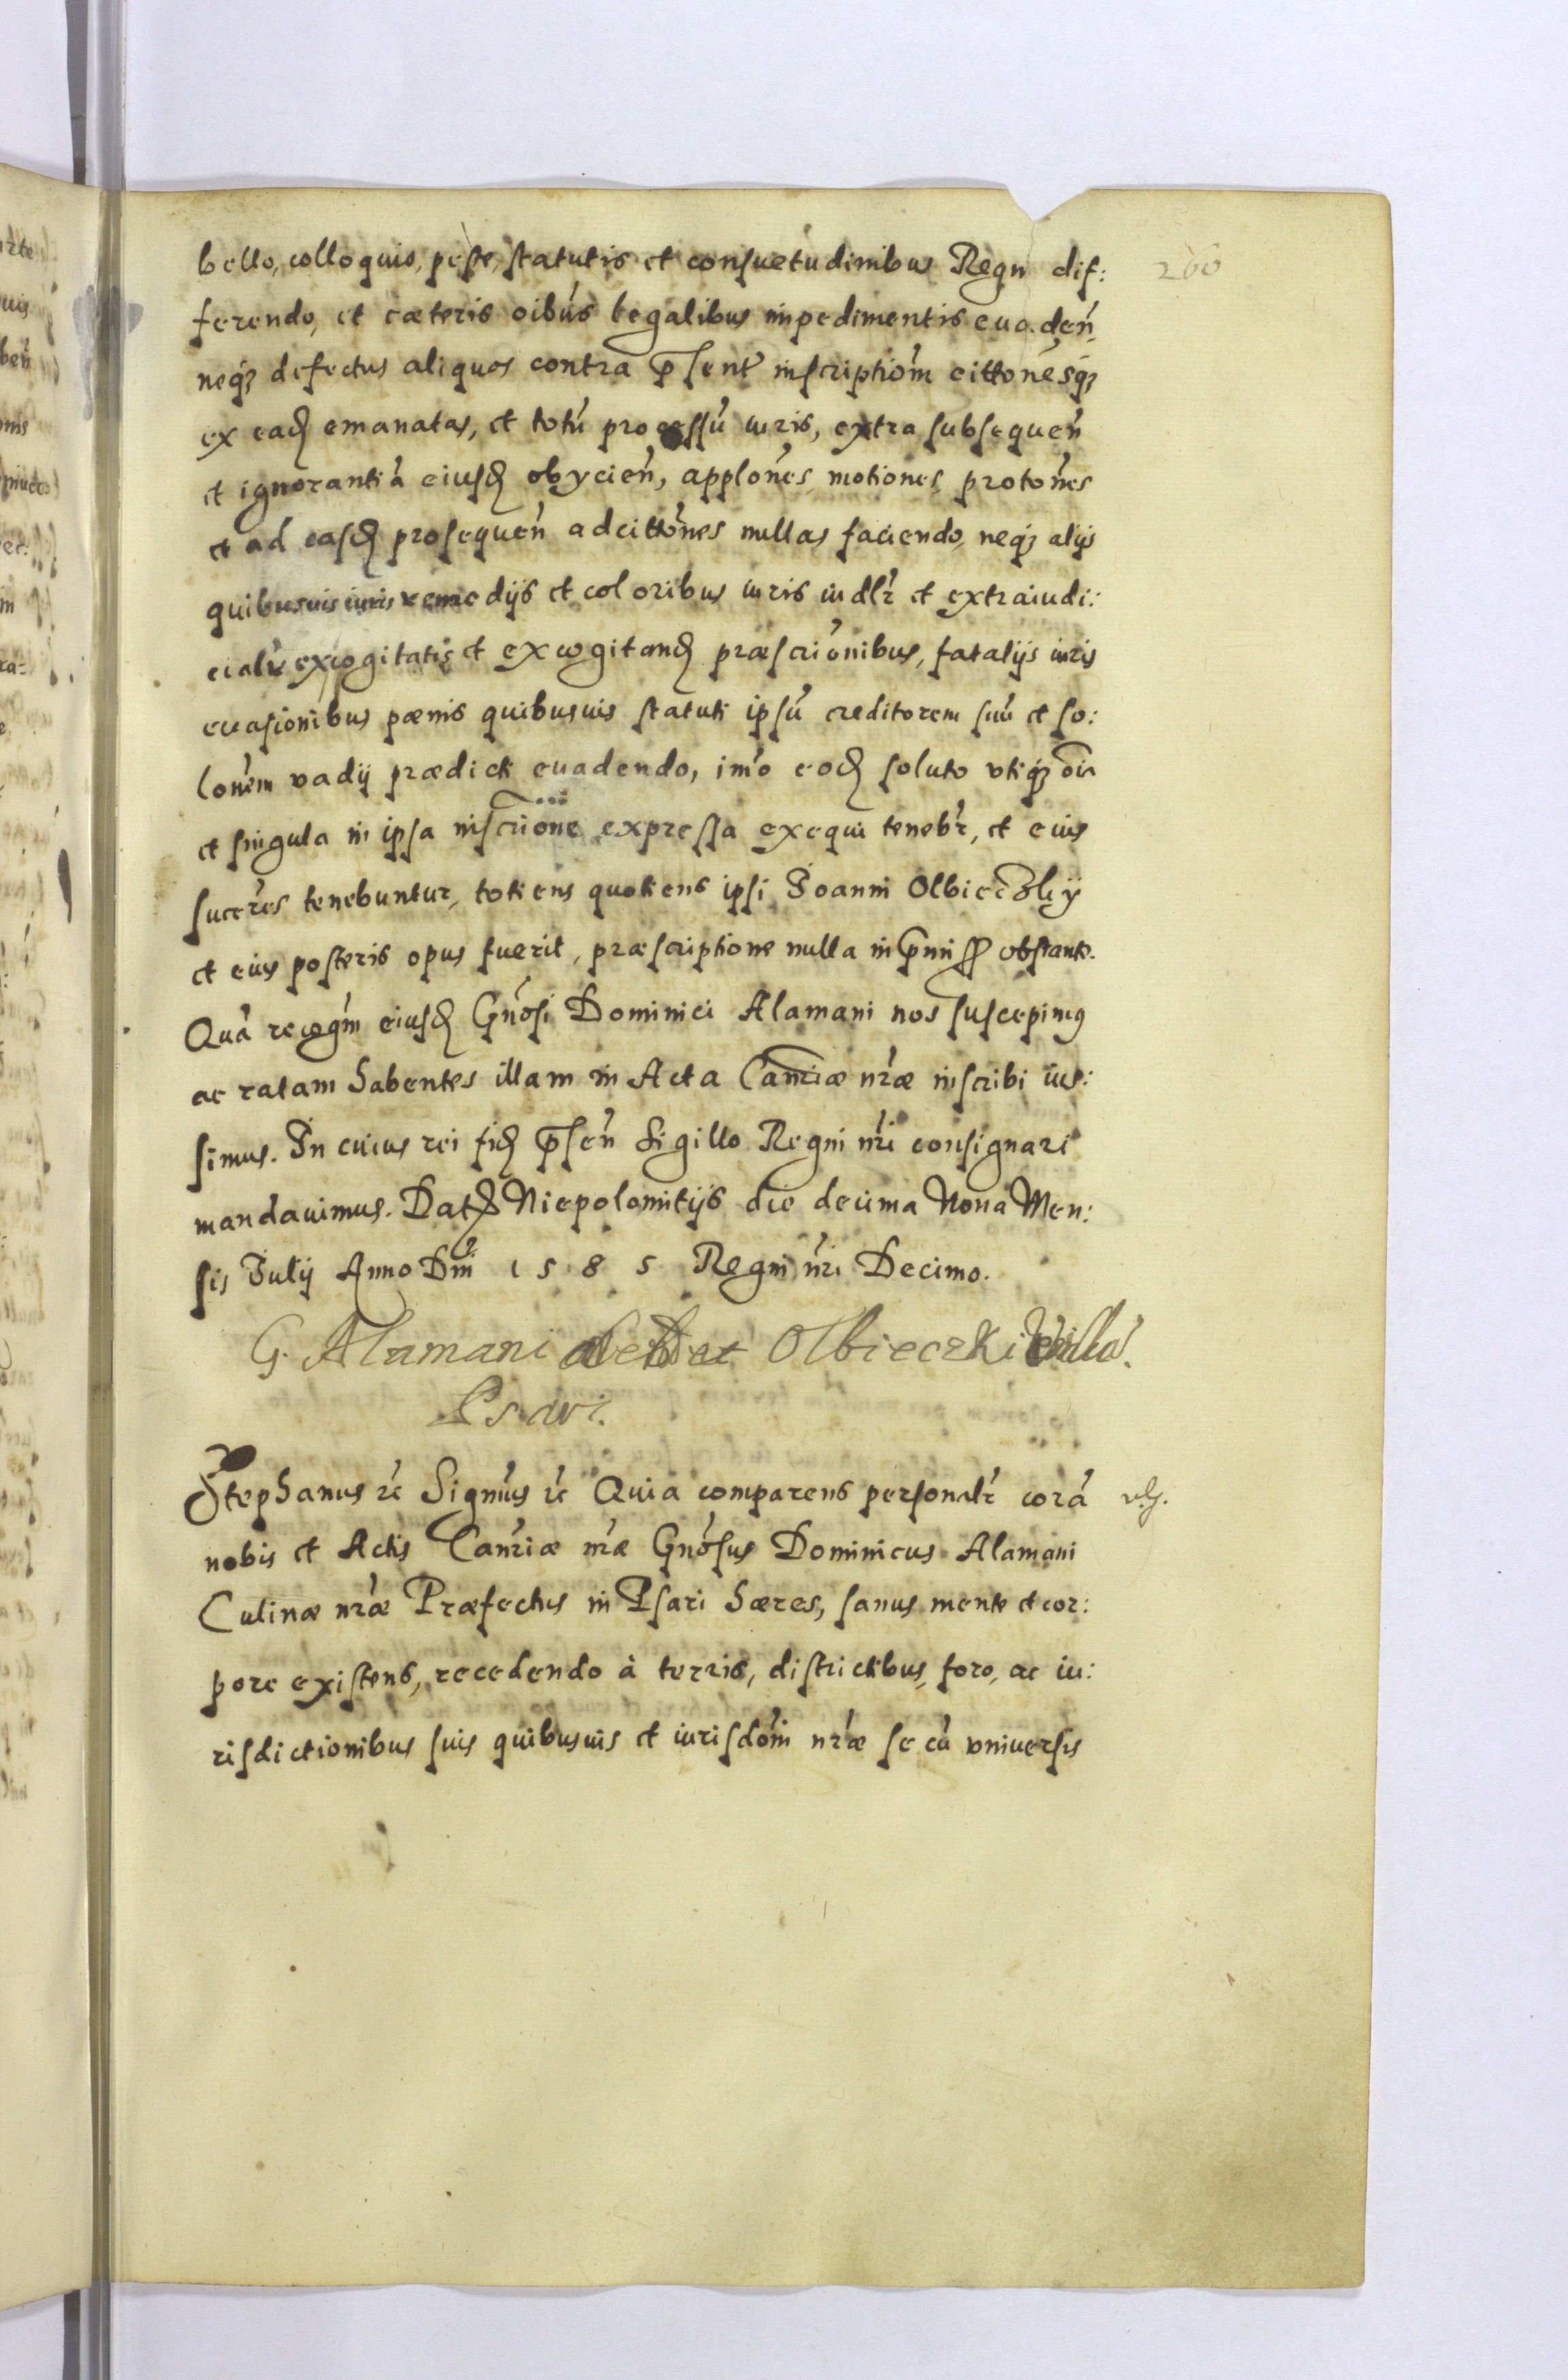 260
bello, colloquio, peste, statutis et consuetudinibus Regni dif:
ferendo, et cæteris oibus legalibus impedimentis euaden̄,
neq3 defectus aliquos contra p̄sent inscriptiom̄ cittonesq3
ex ead emanatas, et totū processū iuris, extra subsequen̄
et ignorantiā eiusd obycien̄, applones, motiones, protones
et ad easd prosequen̄ adcittones nullas faciendo, neq3 alijs
quibusuis iuris remedijs et coloribus iuris iudlr et extraiudi:
cialr excogitatis et excogitand præscrionibus, fatalijs iuris
euasionibus pœnis quibusuis statuti ipsū creditorem suū et so:
lonem vadij prædicti euadendo, imo eod soluto vtiq3 oia
et singula in ipsa inscrione expressa exequi tenebr, et eius
succres tenebuntur, totiens quotiens ipsi Joanni Olbieczky
et eius posteris opus fuerit, præscriptione nulla in p̄mi obstante.
Quā recogm̄ eiusd Gnosi Dominici Alamani nos suscepimus
ac ratam habentes illam in Acta Canriæ nræ inscribi ius:
simus. In cuius rei fid p̄sen̄ Sigillo Regni nri consignari
mandauimus. Dat Niepolomitijs die decima Nona Men:
sis Julij Anno Dni 1585 Regni nri Decimo.
G. Alamani Olbieczki
Psari.
Stephanus rc Signmus rc Quia comparens personalr corā
nobis et Actis Canriæ nræ Gnosus Dominicus Alamani
Culinæ nræ Præfectus in Psari hæres, sanus mente et cor:
pore existens, recedendo à terris, districtibus, foro, ac iu:
risdictionibus suis quibusuis et iurisdom̄ nræ se cū vniuersis